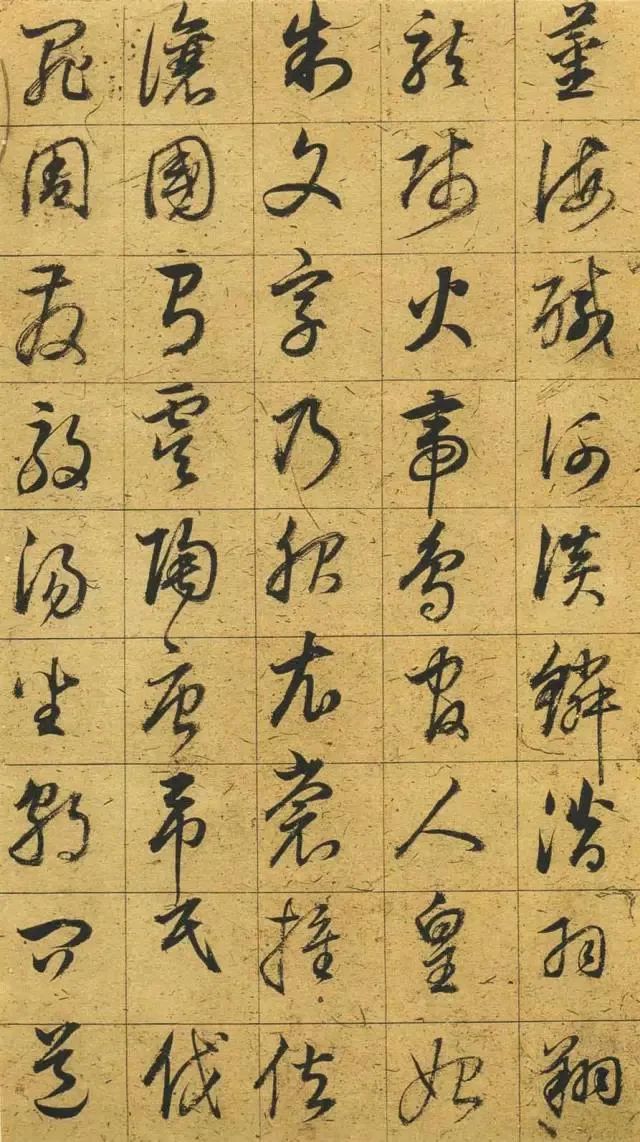 薑海醎河淡鱗潛羽翔
龍師火帝鳥官人皇始
制文字乃服衣裳推位
讓國有虞陶唐吊民伐
罪周發殷湯坐朝問道